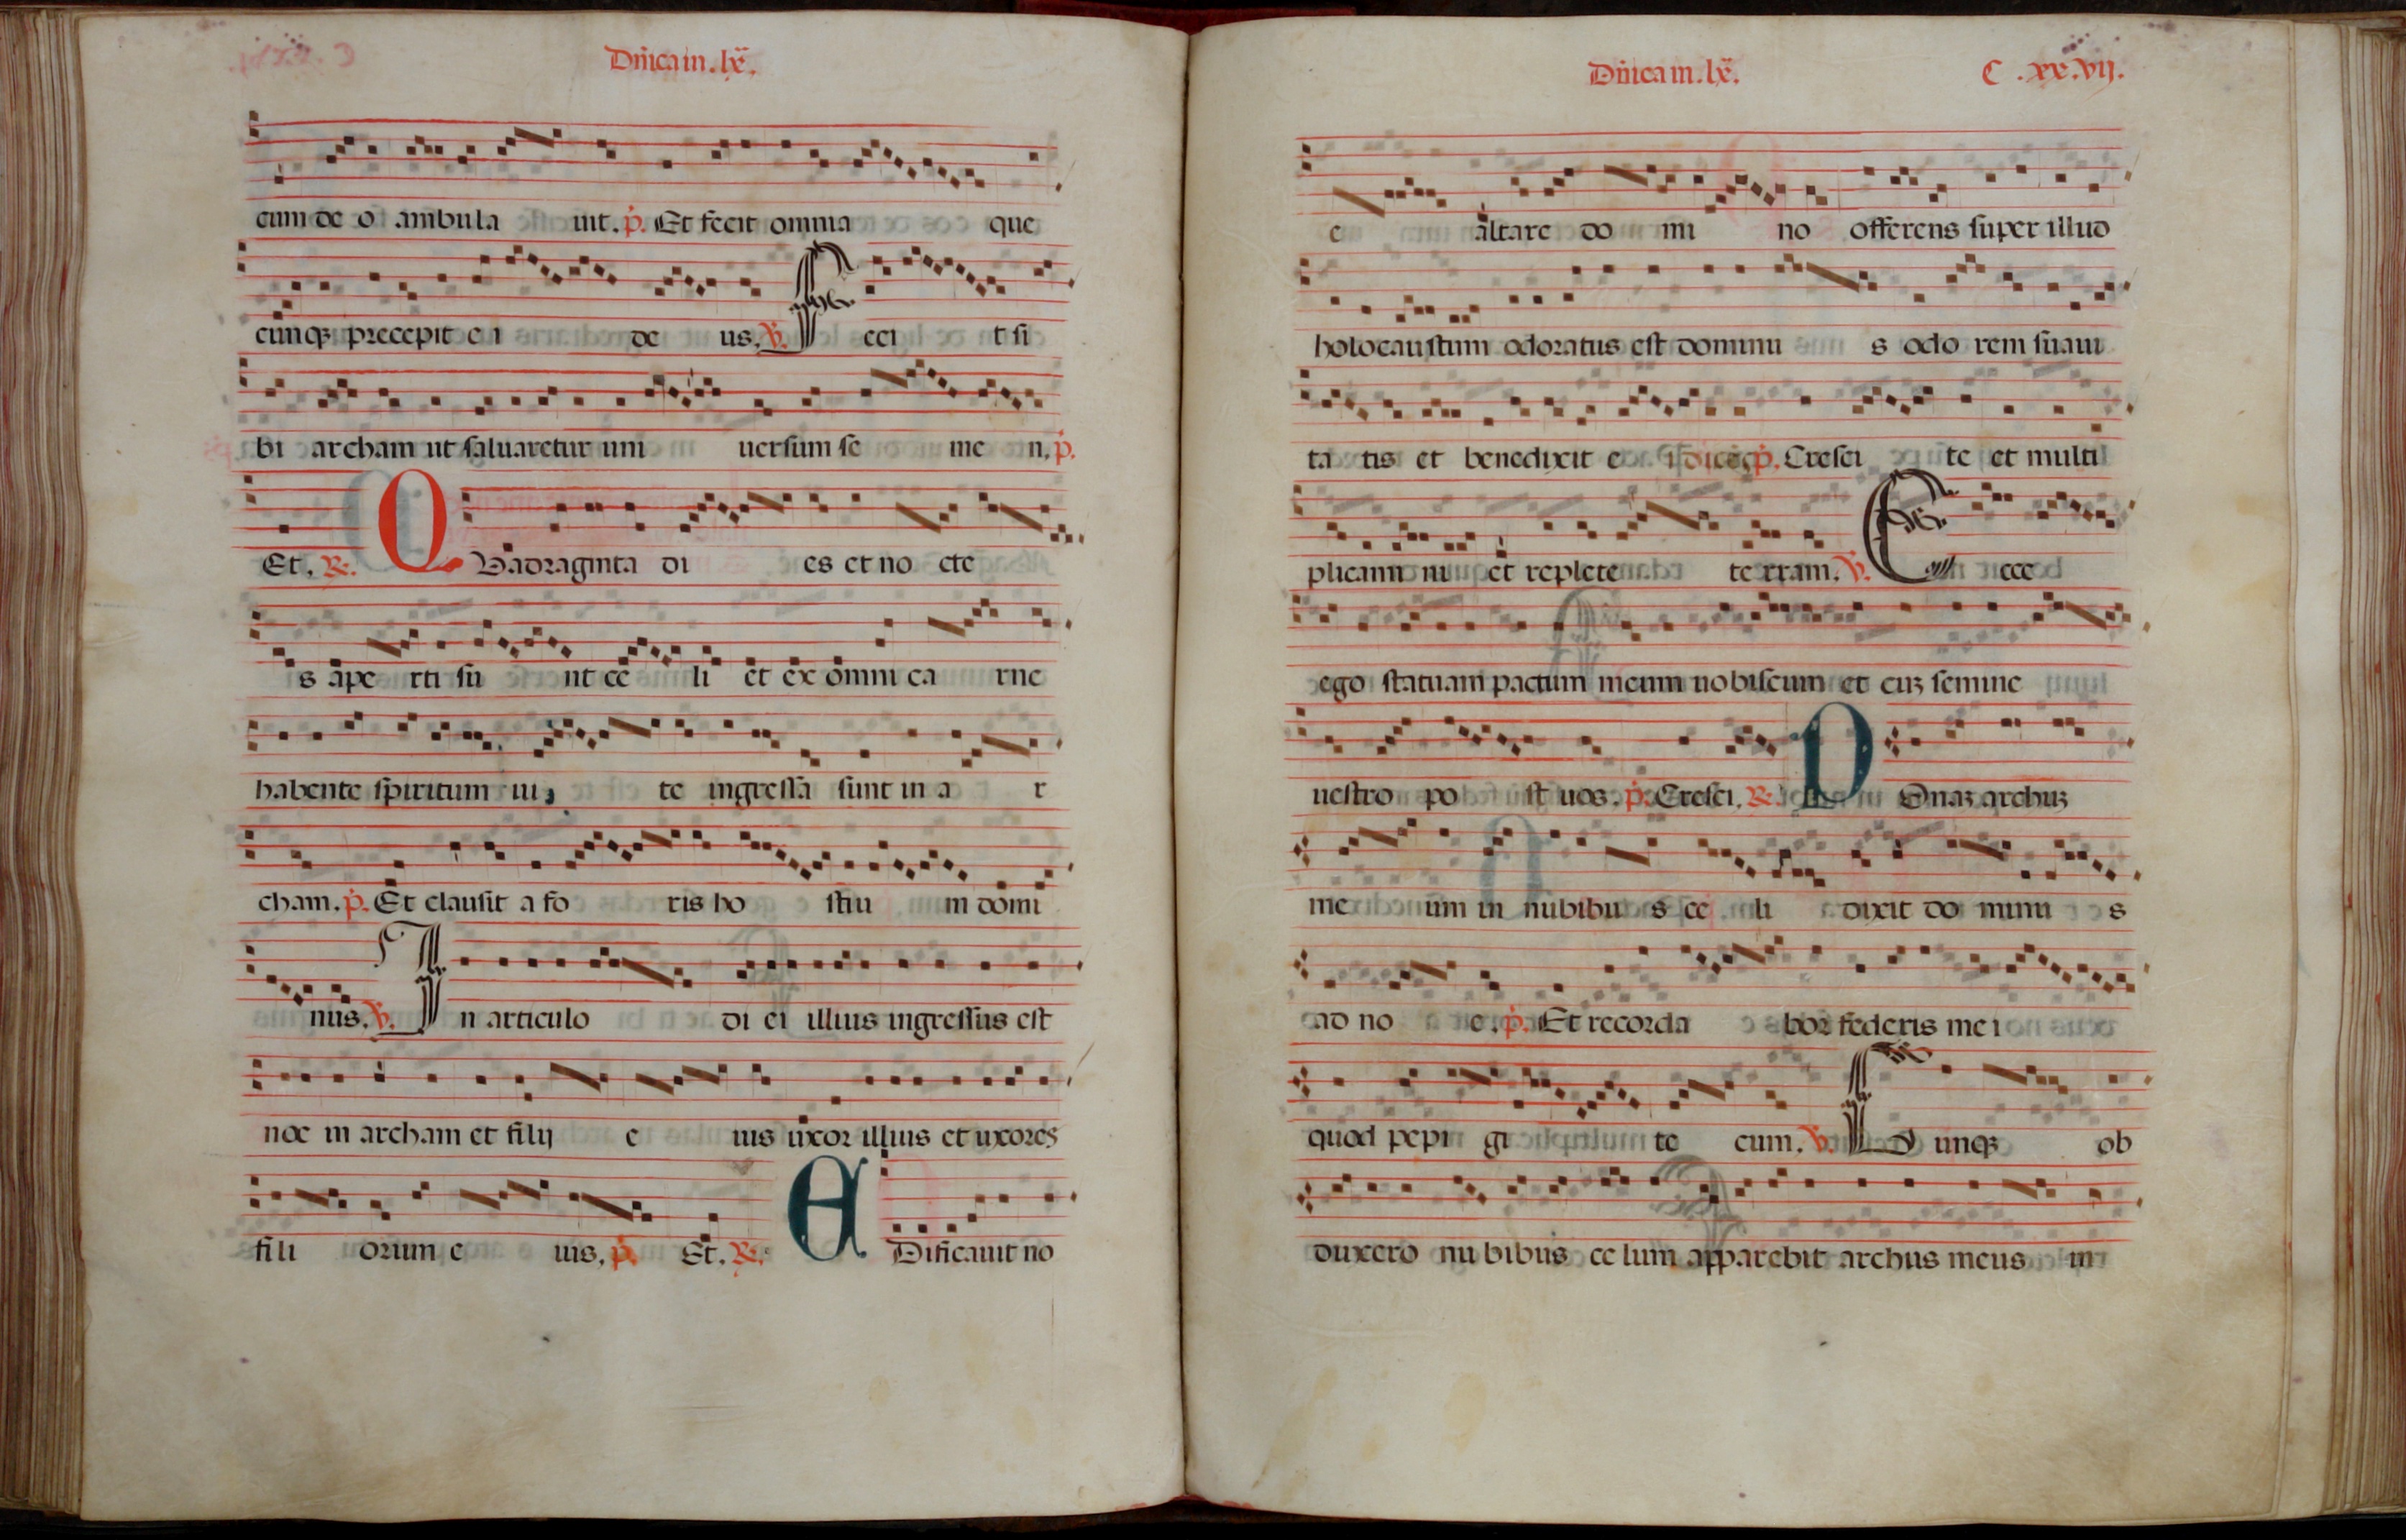 Dñica in .lx̃.
cum de o ambula uit. p̃. Et fecit omnia que
cunqꝫ precepit ei de us. ℣. Feci t si
bi archam ut saluaretur uni uersum se me n. p̃.
Et. ℟. QVadraginta di es et no cte
s ape rti su nt ce li et ex omni ca rne
habente spiritum ui te ingressa sunt in a r
cham. p̃. Et clausit a fo ris ho stiu m domi
nus. ℣. In articulo di ei illius ingressus est
noe in archam et filij e ius uxor illius et uxores
fili orum e ius. p̃. Et. ℟. EDificauit no
Dñica in .lx̃. C .xx.vij.
e altare do mi no offerens super illud
holocaustum odoratus est dominu s odo rem suaui
ta tis et benedixit e i dicẽs p̃. Cresci te et multi
plicami ni et replete te rram. ℣. Ecce
ego statuam pactum meum uobiscum et cuꝫ semine
uestro po st uos. p̃. Cresci. ℟. POnaꝫ archuꝫ
me um in nubibu s ce li dixit do minu s
ad no e. p̃. Et recorda bor federis mei
quod pepi gi te cum. ℣. Cunqꝫ ob
duxero nu bibus ce lum apparebit archus meus in